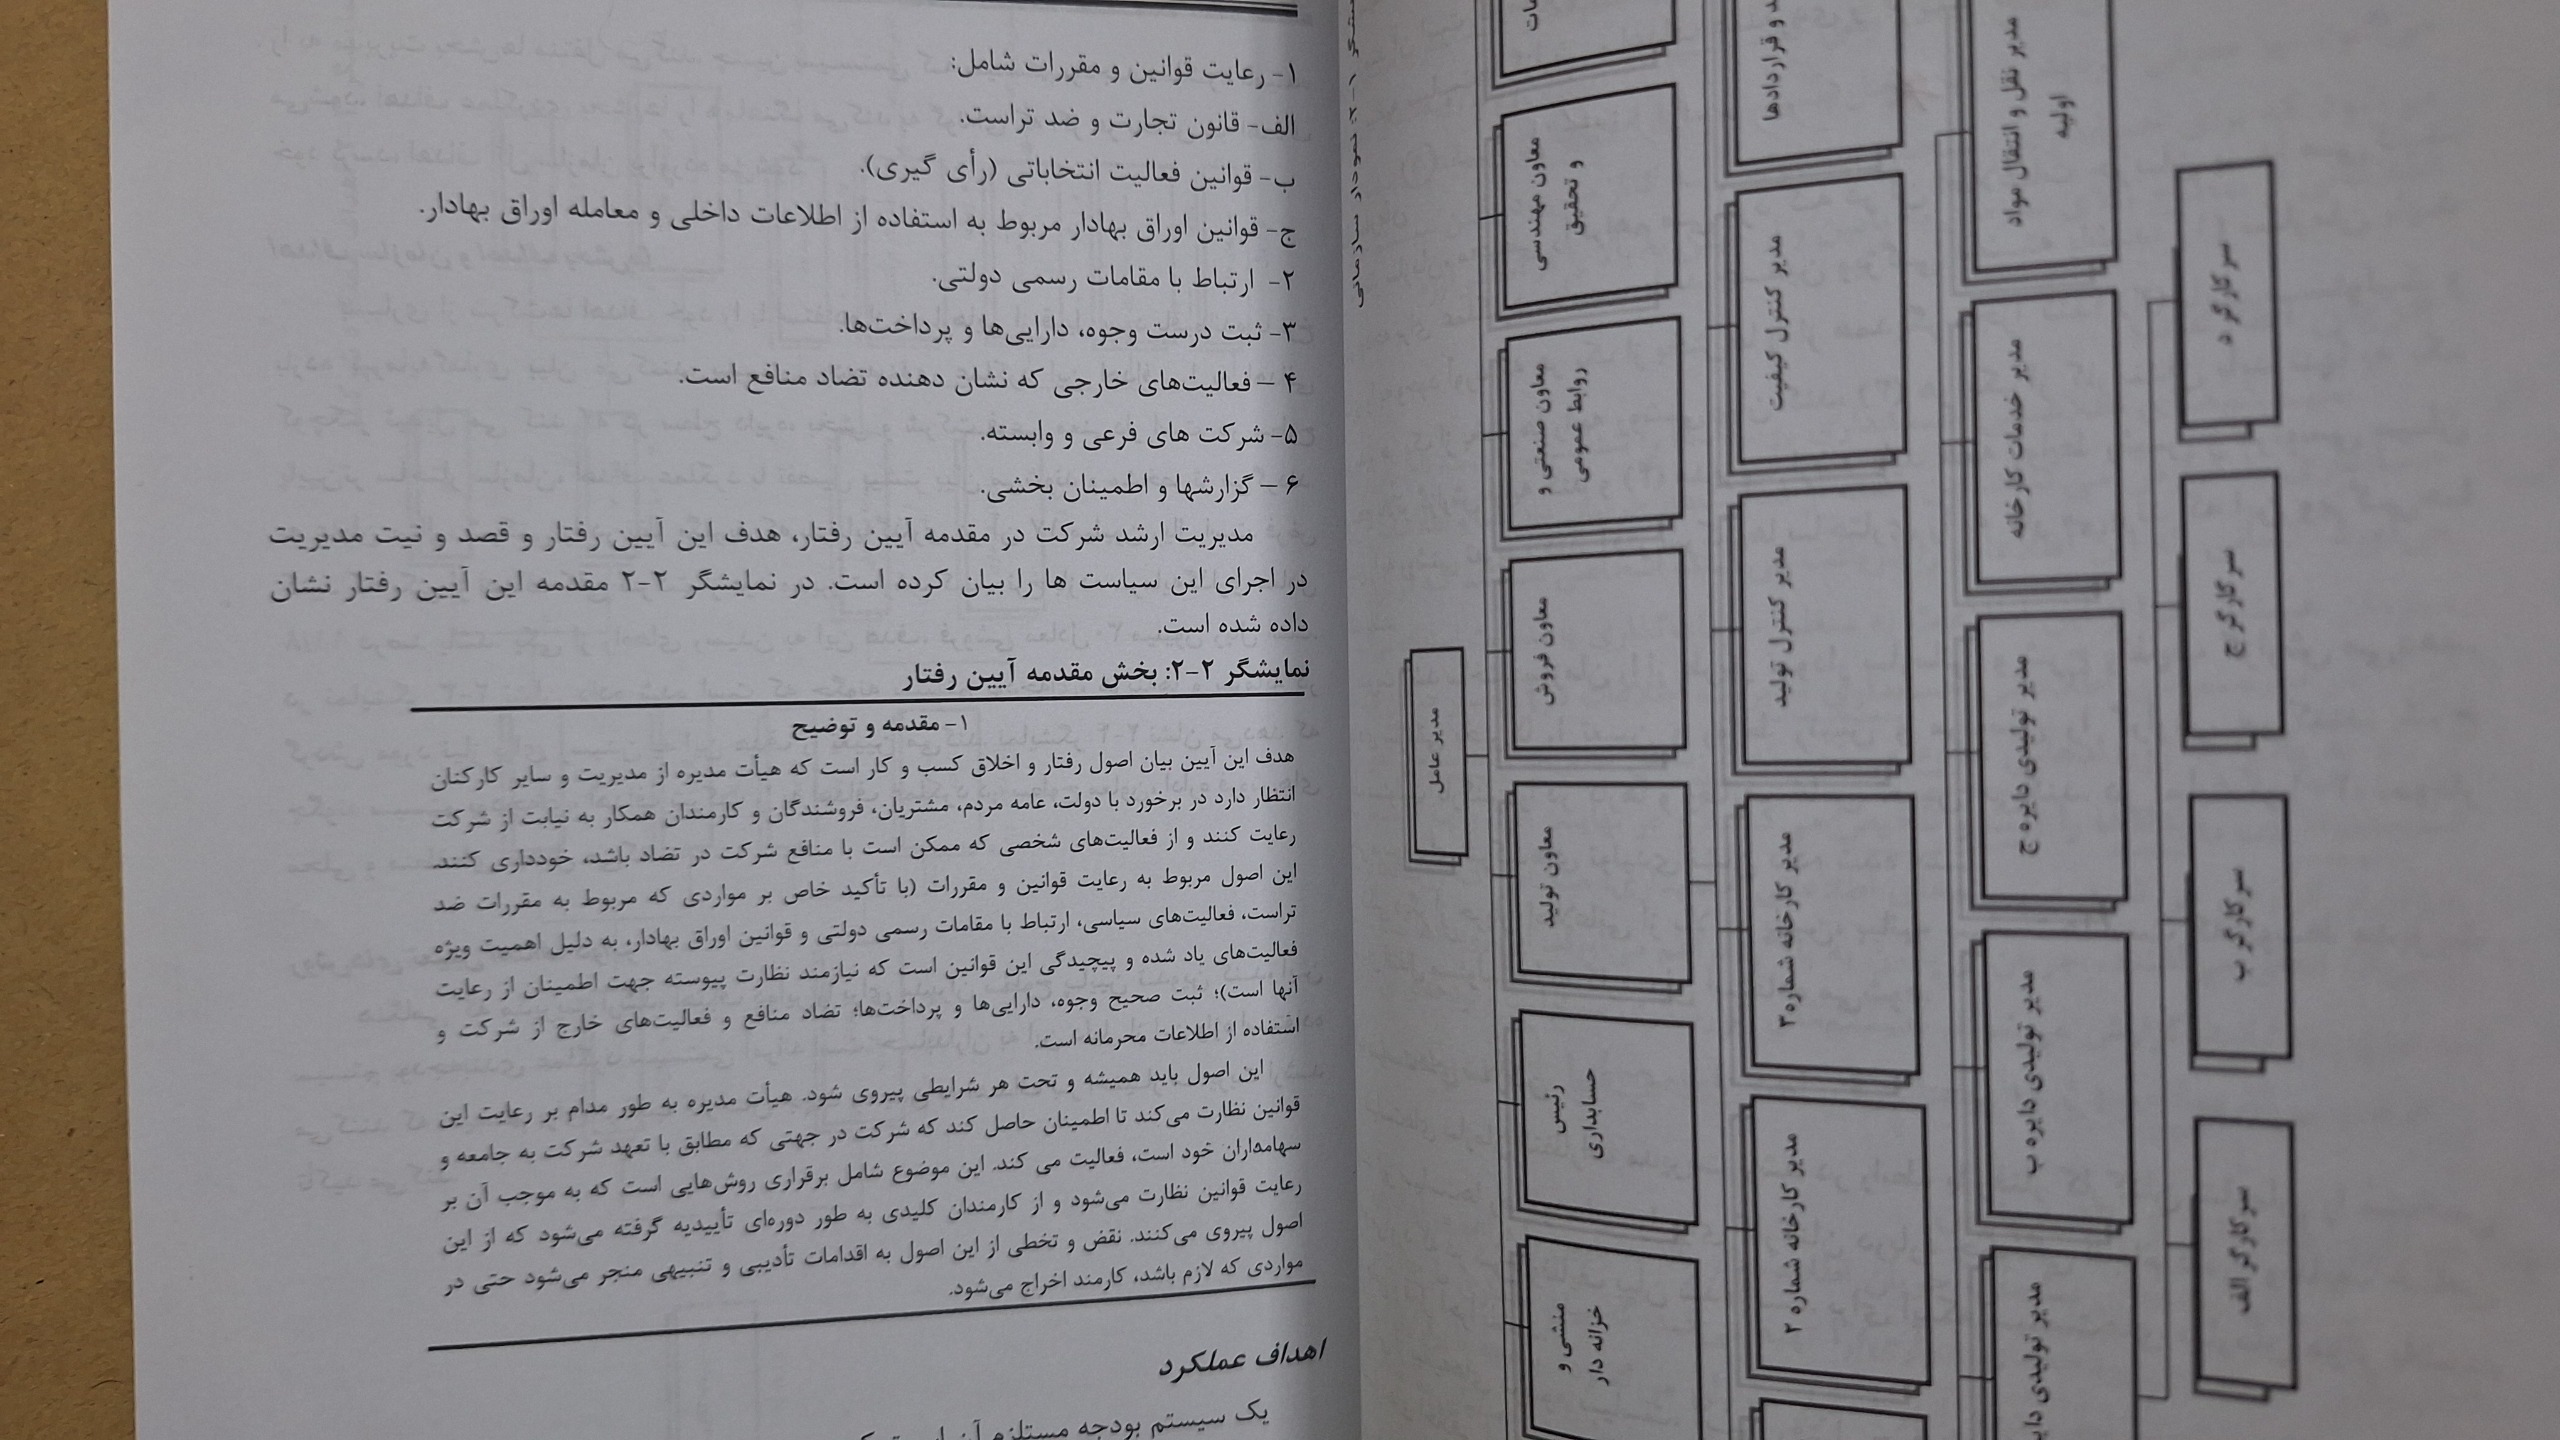 ۱- رعایت قوانین و مقررات شامل:
الف- قانون تجارت و ضد تراست.
ب- قوانین فعالیت انتخاباتی (رأی گیری).
ج- قوانین اوراق بهادار مربوط به استفاده از اطلاعات داخلی و معامله اوراق بهادار.
۲- ارتباط با مقامات رسمی دولتی.
۳- ثبت درست وجوه، دارایی‌ها و پرداخت‌ها.
۴ – فعالیت‌های خارجی که نشان دهنده تضاد منافع است.
۵- شرکت های فرعی و وابسته.
۶ – گزارشها و اطمینان بخشی.
مدیریت ارشد شرکت در مقدمه آیین رفتار، هدف این آیین رفتار و قصد و نیت مدیریت
در اجرای این سیاست ها را بیان کرده است. در نمایشگر ۲-۲ مقدمه این آیین رفتار نشان
داده شده است.
نمایشگر ۲-۲: بخش مقدمه آیین رفتار
۱- مقدمه و توضیح
هدف این آیین بیان اصول رفتار و اخلاق کسب و کار است که هیأت مدیره از مدیریت و سایر کارکنان
انتظار دارد در برخورد با دولت، عامه مردم، مشتریان، فروشندگان و کارمندان همکار به نیابت از شرکت
رعایت کنند و از فعالیت‌های شخصی که ممکن است با منافع شرکت در تضاد باشد، خودداری کنند.
این اصول مربوط به رعایت قوانین و مقررات (با تأکید خاص بر مواردی که مربوط به مقررات ضد
تراست، فعالیت‌های سیاسی، ارتباط با مقامات رسمی دولتی و قوانین اوراق بهادار، به دلیل اهمیت ویژه
فعالیت‌های یاد شده و پیچیدگی این قوانین است که نیازمند نظارت پیوسته جهت اطمینان از رعایت
آنها است)؛ ثبت صحیح وجوه، دارایی‌ها و پرداخت‌ها؛ تضاد منافع و فعالیت‌های خارج از شرکت و
استفاده از اطلاعات محرمانه است.
این اصول باید همیشه و تحت هر شرایطی پیروی شود. هیأت مدیره به طور مدام بر رعایت این
قوانین نظارت می‌کند تا اطمینان حاصل کند که شرکت در جهتی که مطابق با تعهد شرکت به جامعه و
سهامداران خود است، فعالیت می کند. این موضوع شامل برقراری روش‌هایی است که به موجب آن بر
رعایت قوانین نظارت می‌شود و از کارمندان کلیدی به طور دوره‌ای تأییدیه گرفته می‌شود که از این
اصول پیروی می‌کنند. نقض و تخطی از این اصول به اقدامات تأدیبی و تنبیهی منجر می‌شود حتی در
مواردی که لازم باشد، کارمند اخراج می‌شود.
اهداف عملکرد
یک سیستم بودجه مستلزم آن است
نمودار سازمانی
مدیر عامل
معاون مهندسی
و تحقیق
معاون صنعتی و
روابط عمومی
معاون فروش
معاون تولید
رئیس
حسابداری
منشی و
خزانه دار
و قراردادها
مدیر کنترل کیفیت
مدیر کنترل تولید
مدیر کارخانه شماره ۳
مدیر کارخانه شماره ۲
مدیر نقل و انتقال مواد
اولیه
مدیر خدمات کارخانه
مدیر تولیدی دایره ج
مدیر تولیدی دایره ب
مدیر تولیدی
سر کارگر د
سر کارگر ج
سر کارگر ب
سر کارگر الف